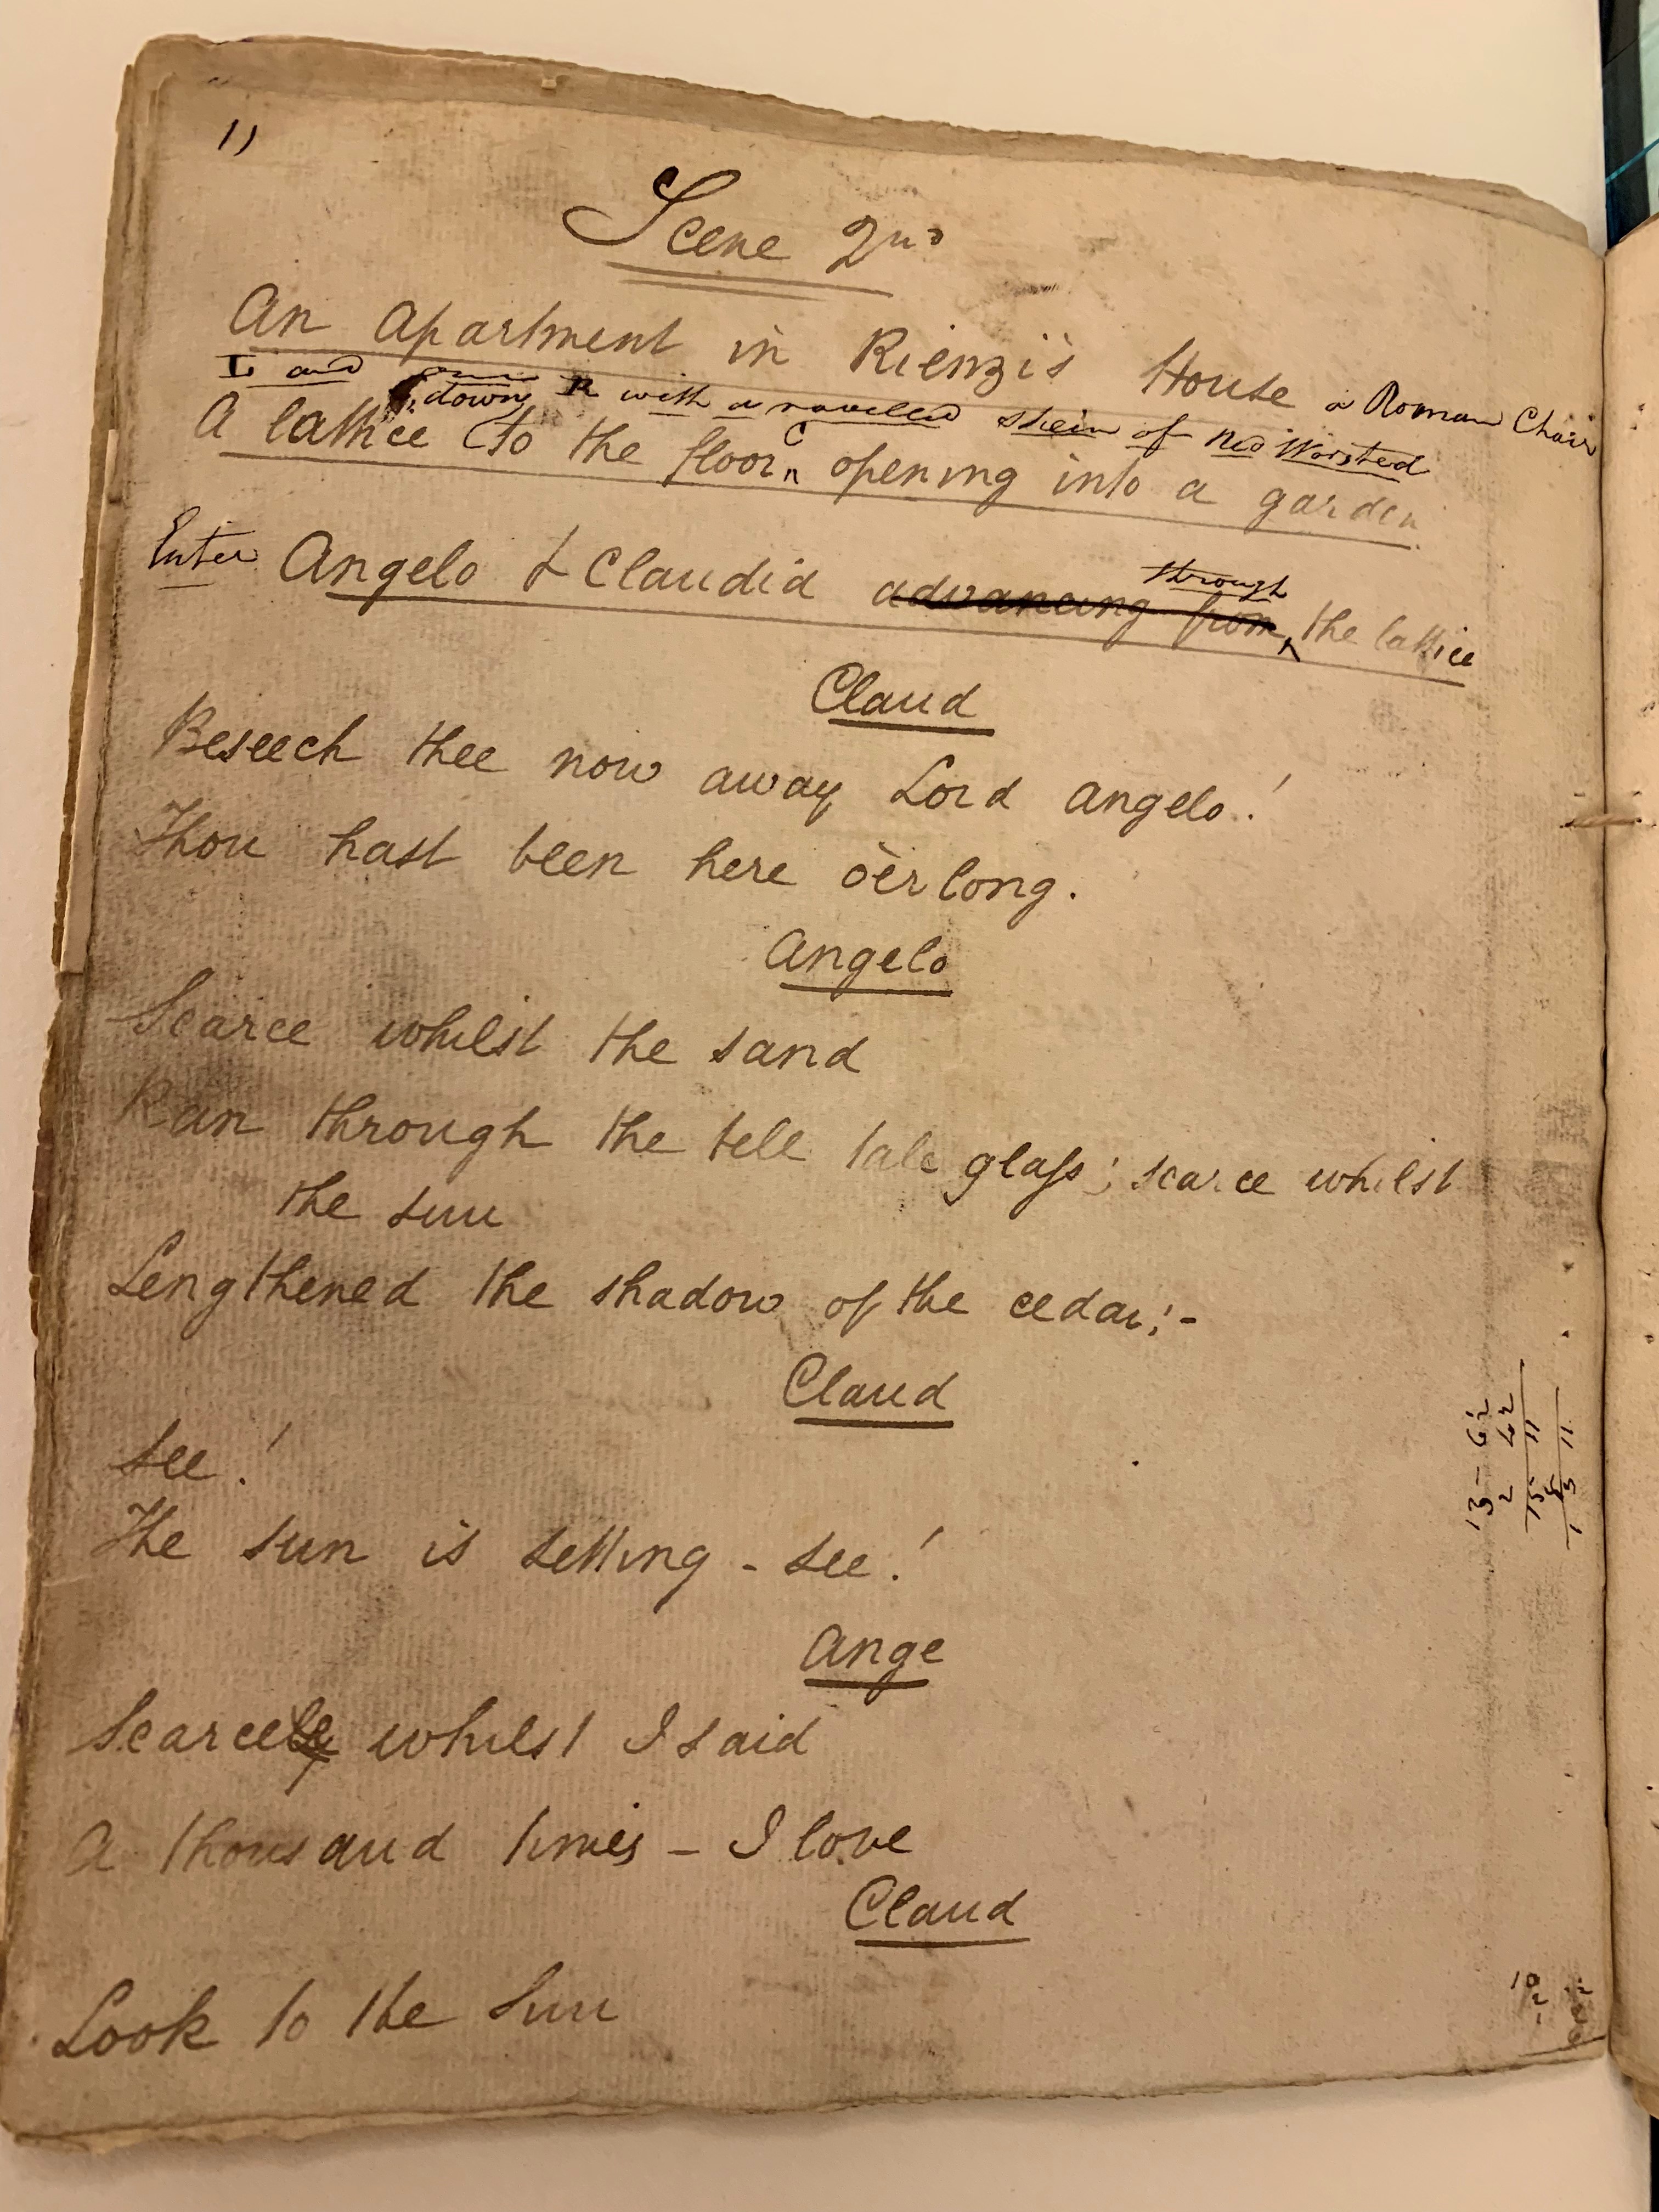 11
Scene 2nd
An Apartment in Rienzi's House a Roman Chair
and down R with a ravelled skein of Red Worsted
A lattice to the floor C opening into a garden
Enter Angelo & Claudia advancing from through the lattice
Claud
Beseech thee now away Lord Angelo!
Thou hast been here o'er long.
Angelo
Scarce whilst the sand
Ran through the tell tale glass; scarce whilst
the sun
Lengthened the shadow of the cedar;-
Claud
See!
The sun is setting - see!
Ange
Scarcely whilst I said
A thousand times - I love
Claud
Look to the Sun